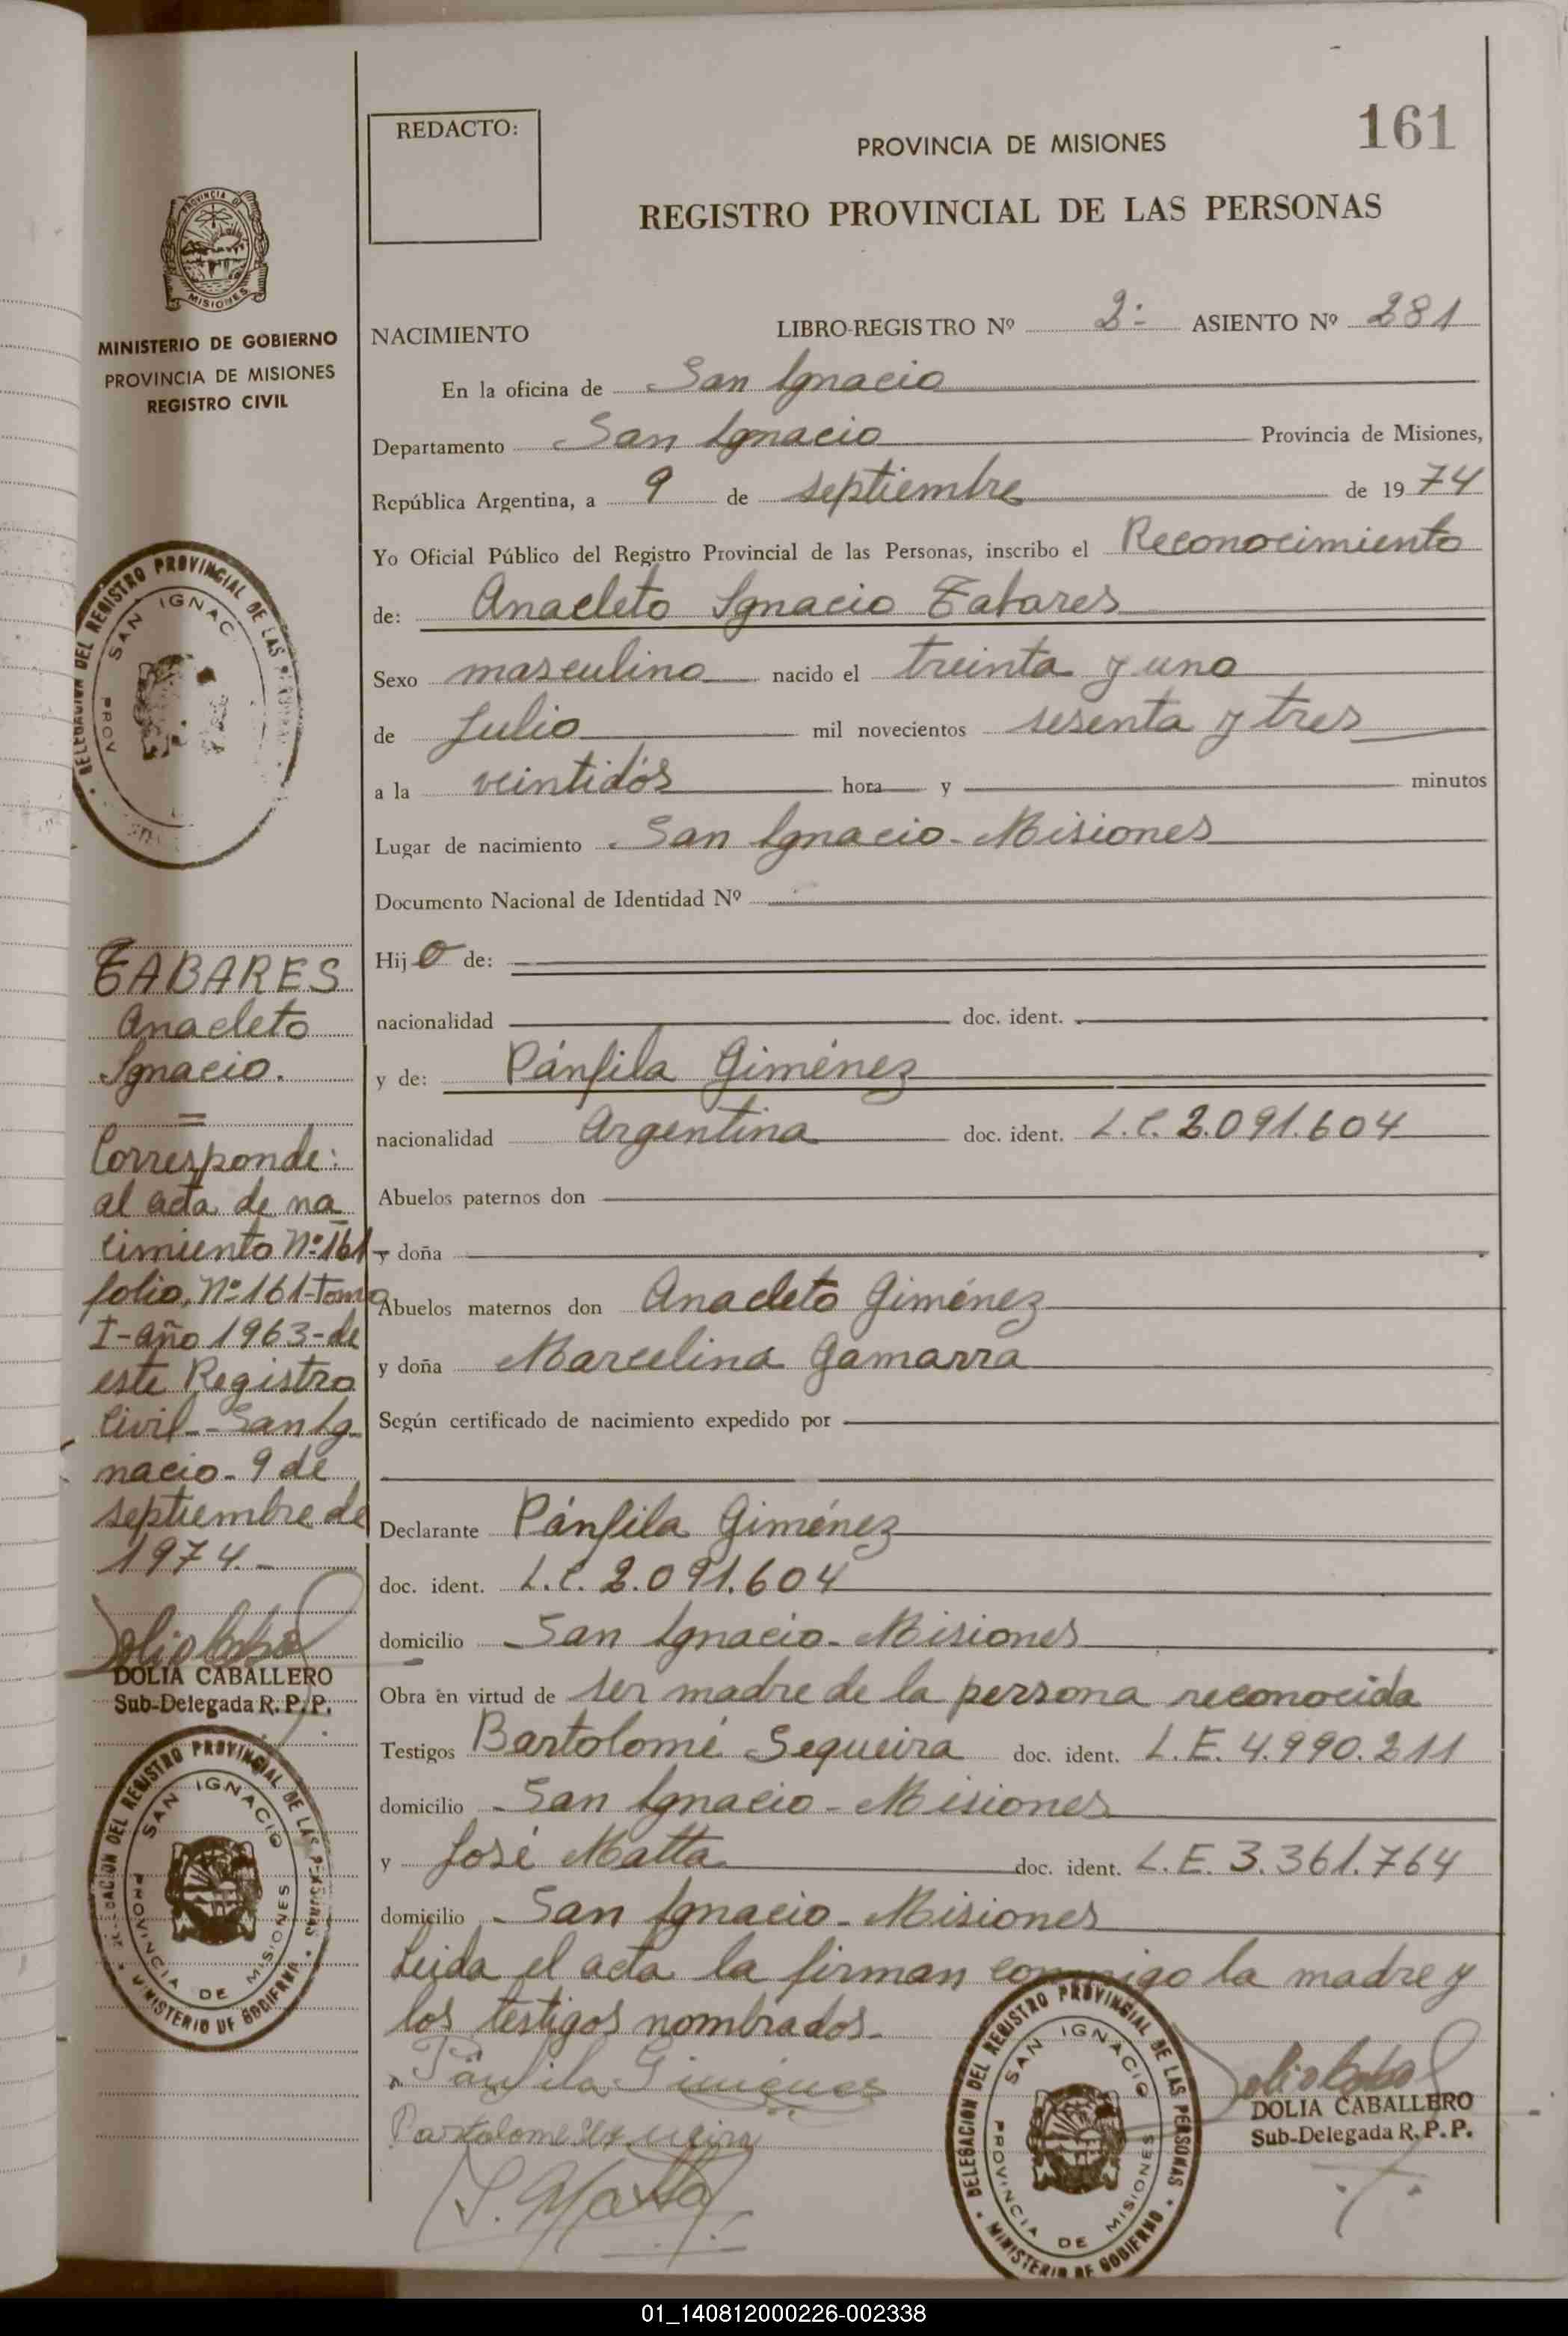 161
REDACTO:
PROVINCIA DE MISIONES
REGISTRO PROVINCIAL DE LAS PERSONAS
PROVINCIA DE
MISIONES
MINISTERIO DE GOBIERNO
PROVINCIA DE MISIONES
REGISTRO CIVIL
NACIMIENTO LIBRO-REGISTRO Nº 2º ASIENTO Nº 281
En la oficina de San Ignacio
Departamento San Ignacio Provincia de Misiones,
República Argentina, a 9 de septiembre de 1974
Yo Oficial Público del Registro Provincial de las Personas, inscribo el Reconocimiento
de: Anacleto Ignacio Tabares
Sexo masculino nacido el treinta y uno
de Julio mil novecientos sesenta y tres
a la veintidós hora y minutos
Lugar de nacimiento San Ignacio - Misiones
Documento Nacional de Identidad Nº
Hijo de:
nacionalidad doc. ident.
y de: Pánfila Giménez
nacionalidad Argentina doc. ident. L.C. 2.091.604
Abuelos paternos don
y doña
Abuelos maternos don Anacleto Giménez
y doña Marcelina Gamarra
Según certificado de nacimiento expedido por
Declarante Pánfila Giménez
doc. ident. L.C. 2.091.604
domicilio San Ignacio - Misiones
Obra en virtud de ser madre de la persona reconocida
Testigos Bartolomé Sequeira doc. ident. L.E. 4.990.211
domicilio San Ignacio - Misiones
y José Matta doc. ident. L.E. 3.361.764
domicilio San Ignacio - Misiones
Leida el acta la firman conmigo la madre y
los testigos nombrados.
Pánfila Gimenes
Bartolome Sequeira
J. Matta
DOLIA CABALLERO
Sub-Delegada R. P. P.
DELEGACION DEL REGISTRO PROVINCIAL DE LAS PERSONAS
SAN IGNACIO
PROVINCIA DE MISIONES
MINISTERIO DE GOBIERNO
DELEGACION DEL REGISTRO PROVINCIAL DE LAS
SAN IGNAC
PROV
TABARES
Anacleto
Ignacio.
Corresponde:
al acta de na
cimiento Nº 161
folio, Nº 161-Tomo
I-año 1963-de
este Registro
Civil - San Ig
nacio - 9 de
septiembre de
1974.-
DOLIA CABALLERO
Sub-Delegada R. P. P.
DELEGACION DEL REGISTRO PROVINCIAL DE LAS PERSONAS
SAN IGNACIO
PROVINCIA DE MISIONES
MINISTERIO DE GOBIERNO
01_140812000226-002338